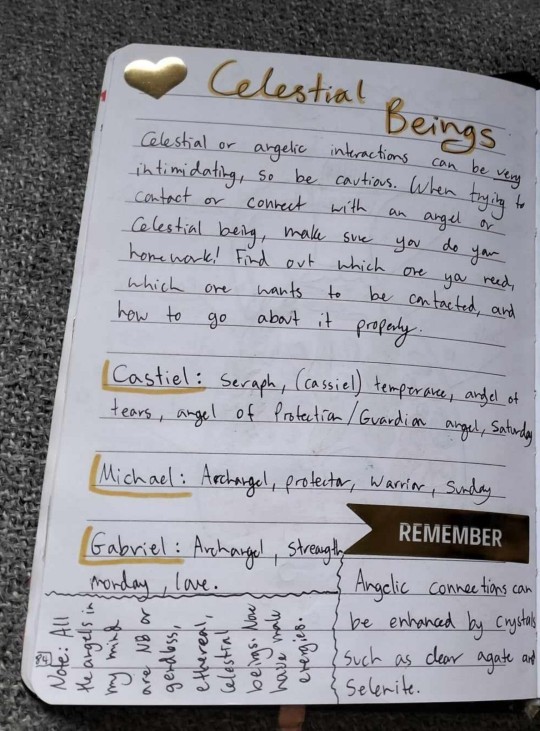 Celestial
Beings
Celestial or angelic interactions can be very
intimidating, so be cautious. When trying to
contact or connect with an angel or
Celestial being, make sure you do your
homework! Find out which one you need,
which one wants to be contacted, and
how to go about it properly.
Castiel: Seraph, (Cassiel) temperance, angel of
tears, angel of Protection/Guardian angel, Saturday
Michael: Archangel, protector, warrior, Sunday
Gabriel: Archangel, Strength
monday, love.
REMEMBER
Angelic connections can
be enhanced by crystals
such as clear agate and
Selenite.
Note: All
the angels in
my mind
are NB or
ethereal,
Celestial
beings. Now
have male
energies.
84